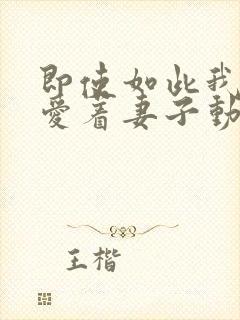 即使如此我
爱着妻子動
王楷